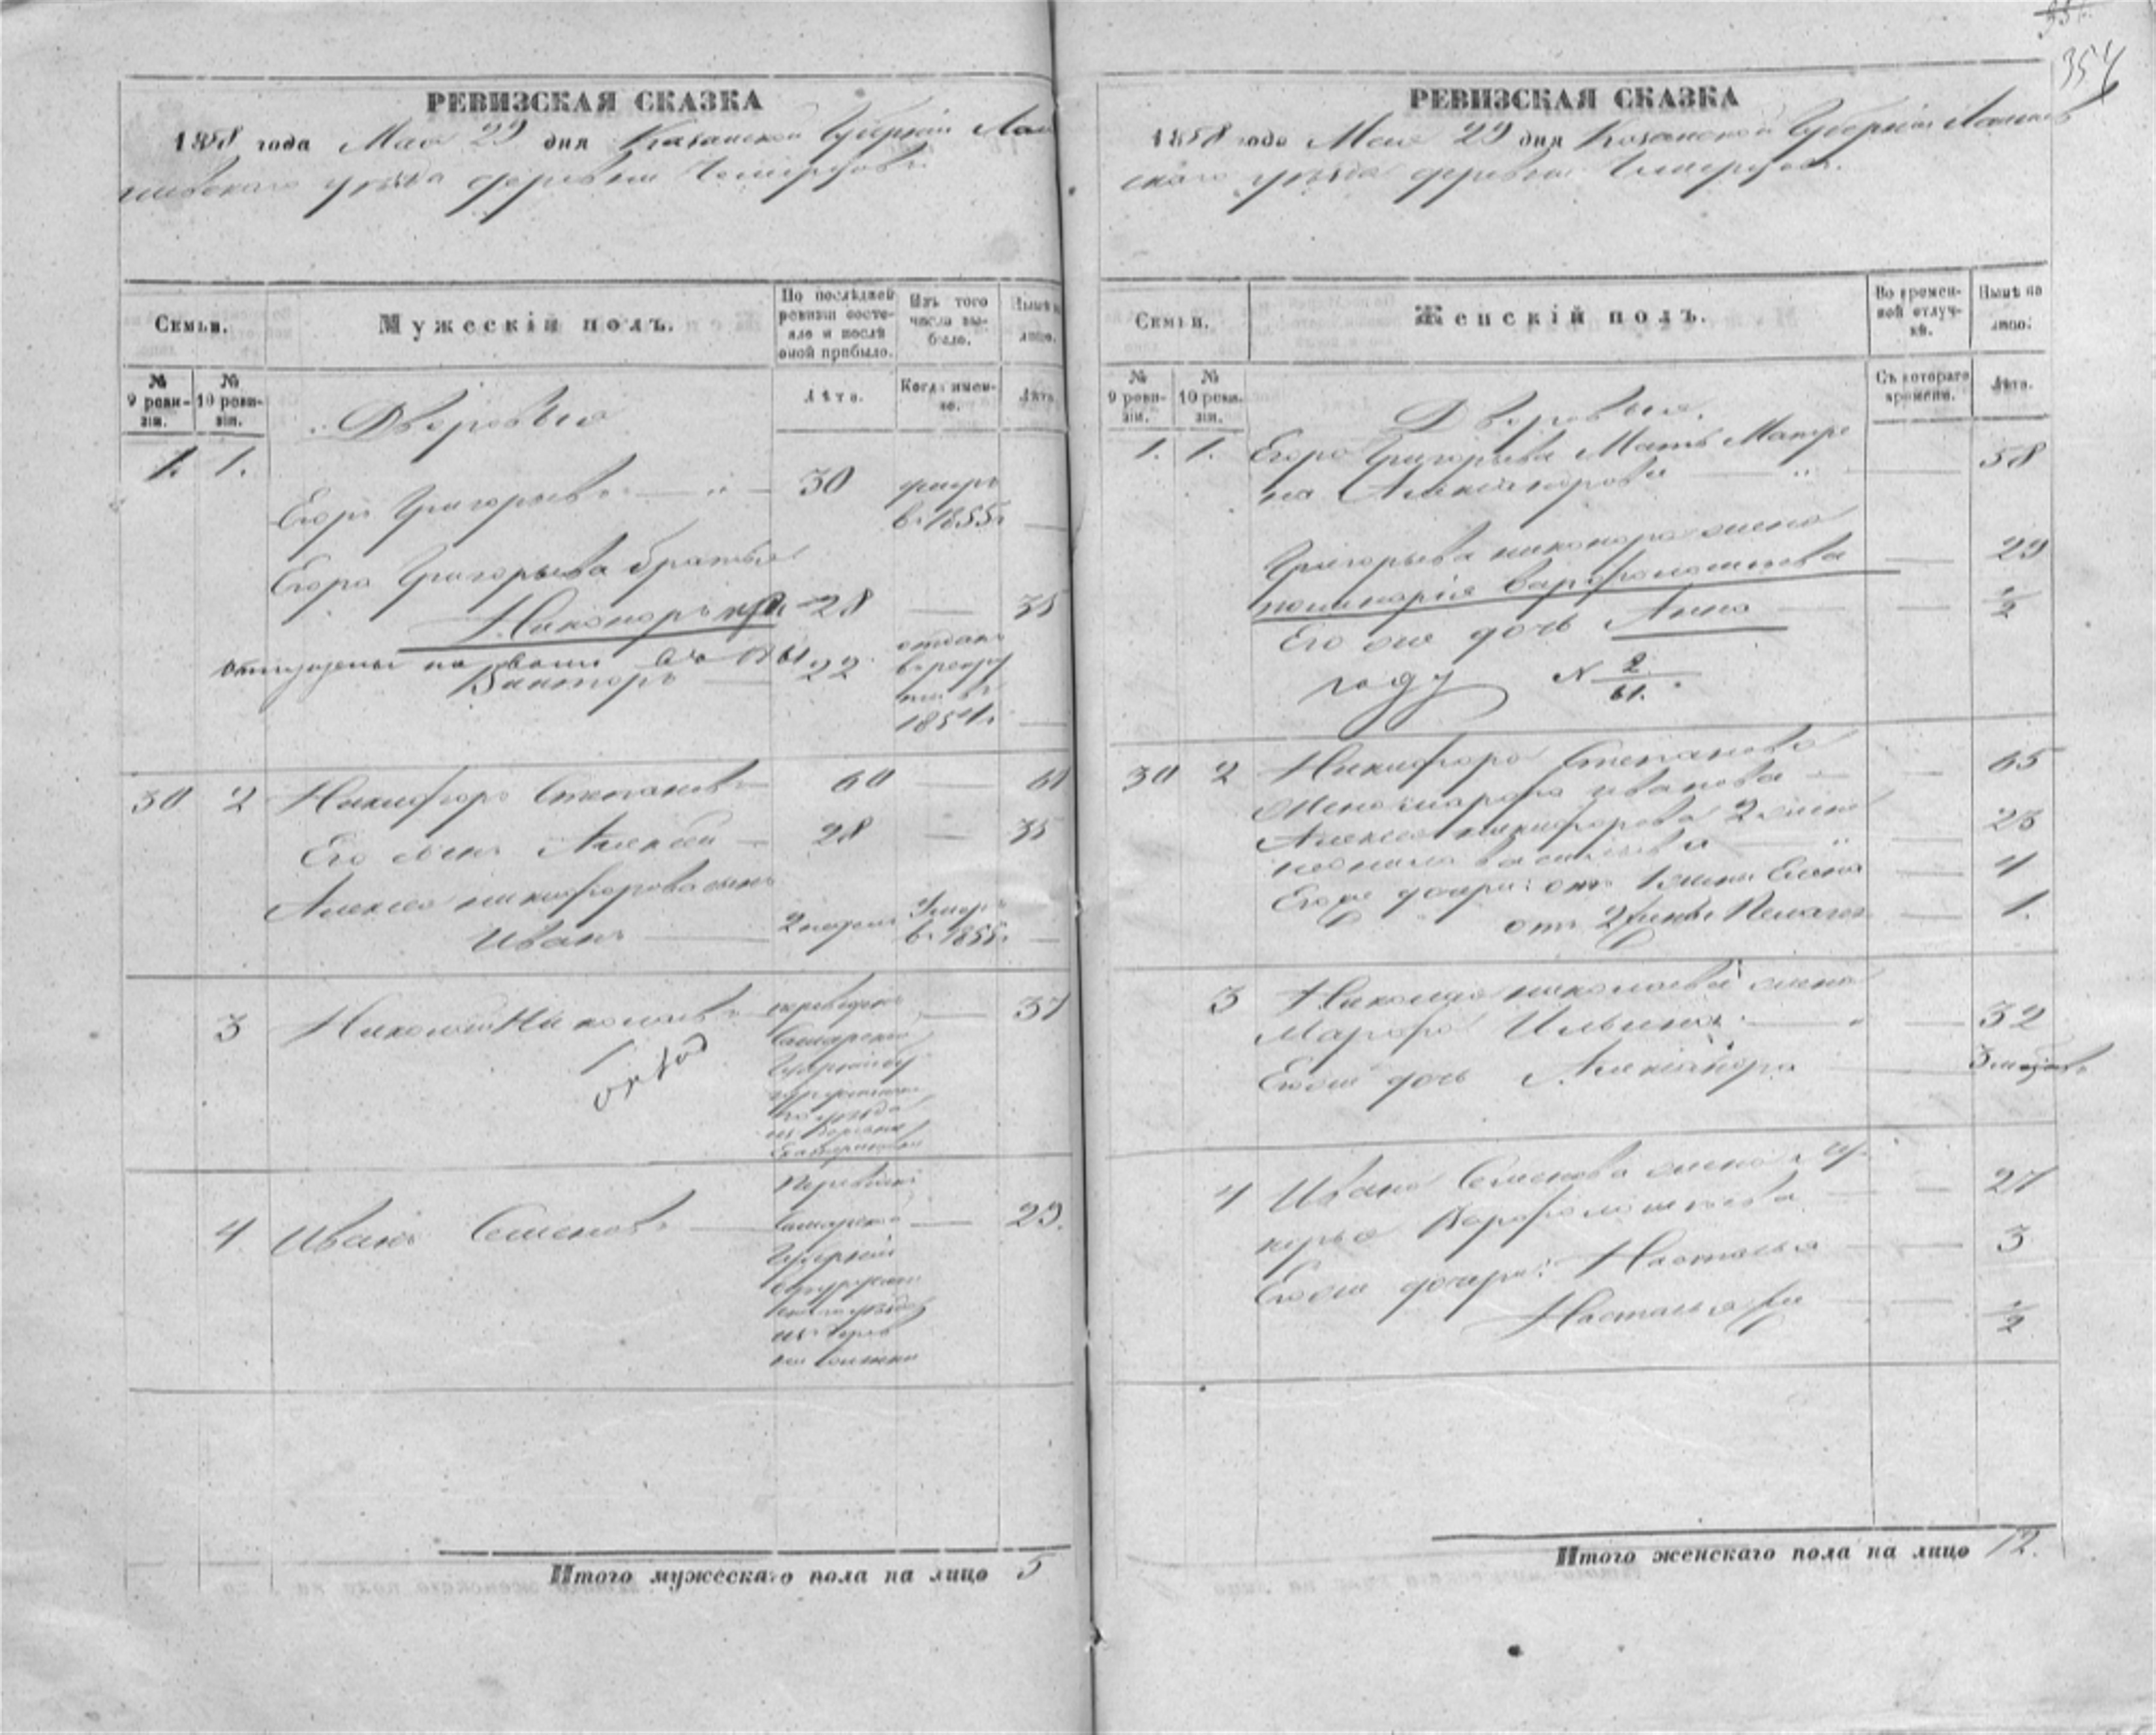 354
РЕВИЗСКАЯ СКАЗКА
1858 года Мая 29 дня Казанской Губернии Лаи
шевскаго уезда деревни
Семьи.
Мужескій полъ.
По послѣдней ревизіи состояло и послѣ оной прибыло.
Изъ того числа выбыло.
Нынѣ на лицо.
№ 9 ревизіи.
№ 10 ревизіи.
Лѣта.
Когда именно.
Лѣта.
Дворовые
1. 1.
Егоръ Григорьевъ 30 умеръ
въ 1855г
Егора Григорьева братья
Никаноръ 28 — 35
отпущены на волю в 1861
Викторъ — 22 отданъ
в рекру
ты въ
1854г
30 2 Никифоръ Степановъ 60 — 68
Его сынъ Алексей — 28 — 35
Алексея никифорова сынъ
Иванъ — 2 недели Умеръ
в 1855г
3 Николай Николаевъ — 37
Самарской
Губерніи
уезда
4 Иванъ Семеновъ — 29.
Самарской
Губерніи
уезда
из дерев
ни
Итого мужескаго пола на лицо 5
РЕВИЗСКАЯ СКАЗКА
1858 года Мая 29 дня Казанской Губерніи Лаишев
скаго уезда деревни
Семьи.
Женскій полъ.
Во временной отлучкѣ.
Нынѣ на лицо.
№ 9 ревизіи.
№ 10 ревизіи.
Съ котораго времени.
Лѣта.
Дворовые.
1. 1. Егора Григорьева Мать Матре
на Александрова — 58
Григорьева никанора жена
Варфоломеева — 29
Его же дочь Анна — 1/2
году № 2/61.
30 2 Никифора Степанова
жена Марфа иванова — 65
Алексея никифорова 2 жена
васильева — 23
Его же дочери: от 1 жены Елена — 4
от 2 жены Пелагея — 1.
3 Николая николаева жена
Марфа Ильина — 32
Его же дочь Александра — 3 месяц
4 Ивана Семенова жена
Варфоломеева — 27
Его же дочери: Настасья — 3
Настасья же — 1/2
Итого женскаго пола на лицо 12.